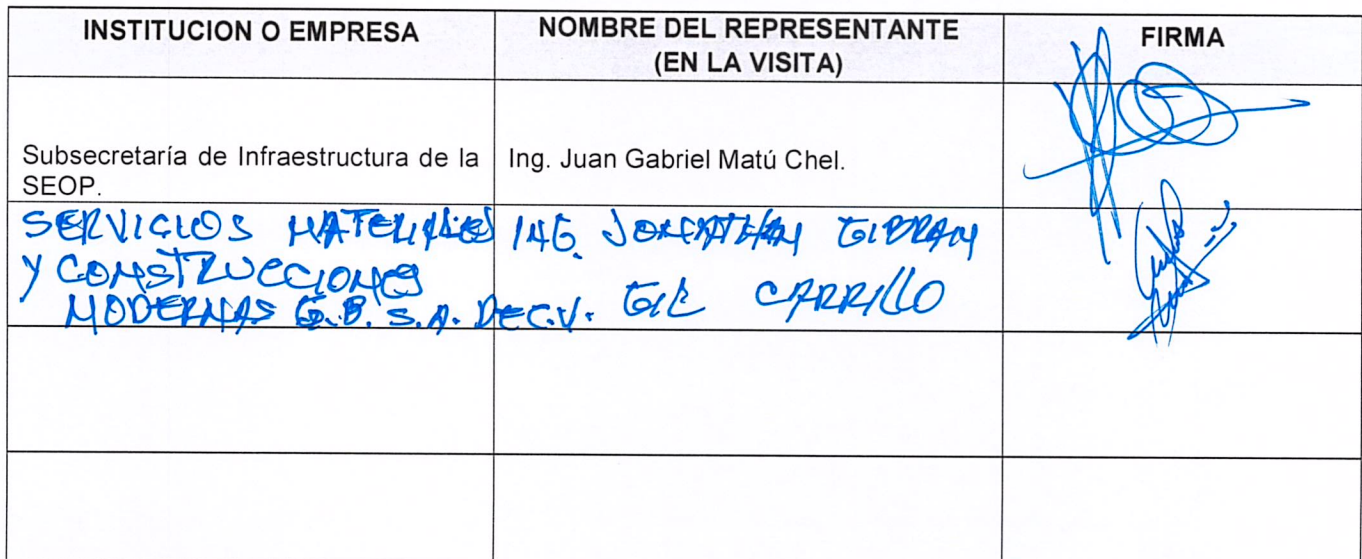 INSTITUCION O EMPRESA
NOMBRE DEL REPRESENTANTE
(EN LA VISITA)
FIRMA
Subsecretaría de Infraestructura de la
SEOP.
Ing. Juan Gabriel Matú Chel.
SERVICIOS MATERIALES
Y CONSTRUCCIONES
MODERNAS G.B. S.A. DE C.V.
ING. JONATHAN GIBRAN
GIL CARRILLO